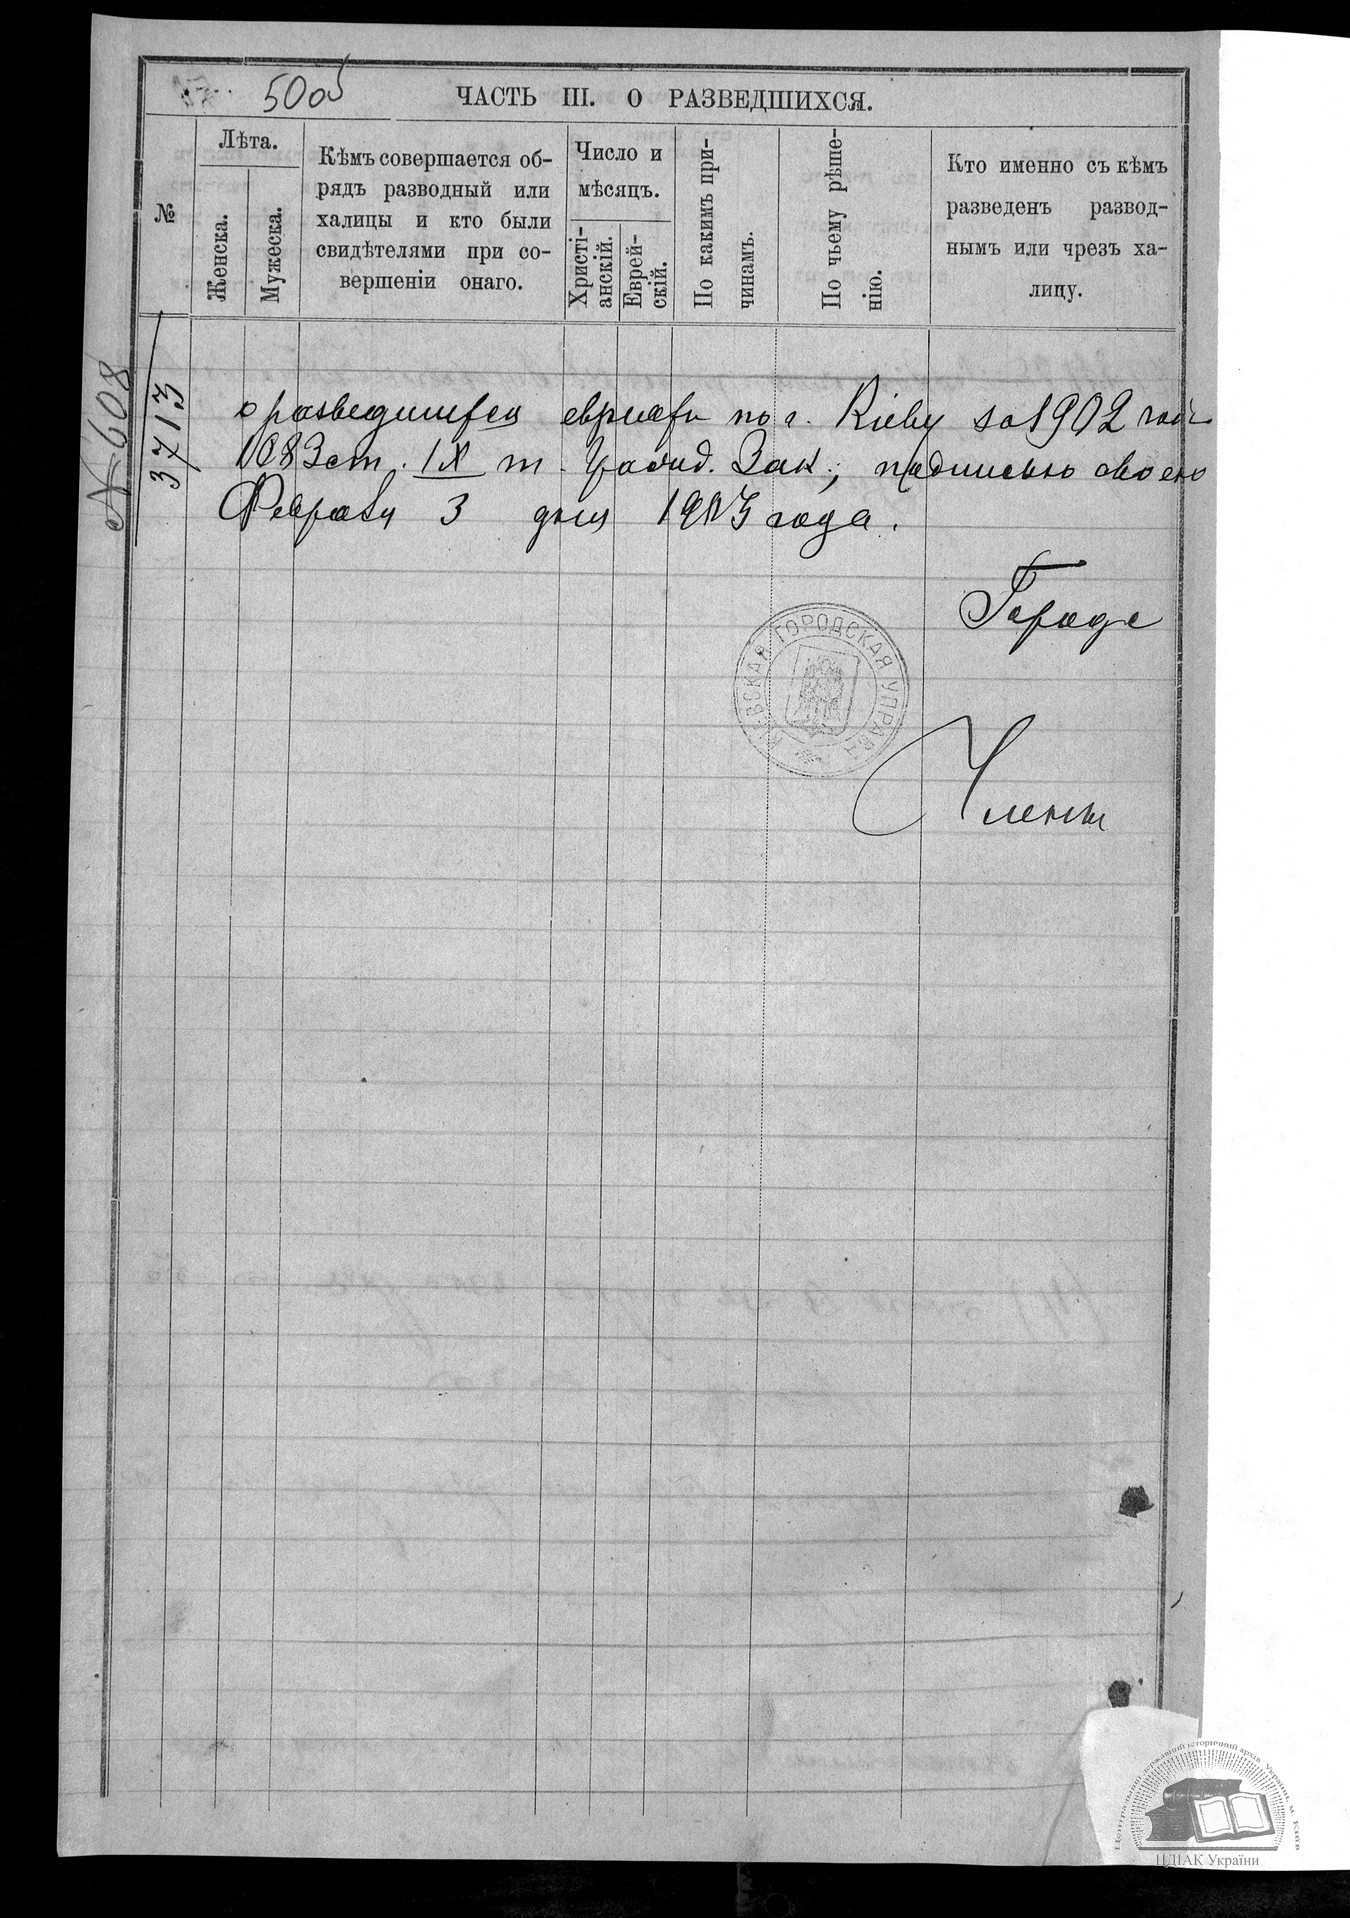 500
ЧАСТЬ III. О РАЗВЕДШИХСЯ.
№
Лѣта.
Женска.
Мужеска.
Кѣмъ совершается об-
рядъ разводный или
халицы и кто были
свидѣтелями при со-
вершеніи онаго.
Число и
мѣсяцъ.
Христі-
анскій.
Еврей-
скій.
По какимъ при-
чинамъ.
По чьему рѣше-
нію.
Кто именно съ кѣмъ
разведенъ развод-
нымъ или чрезъ ха-
лицу.
№ 608
3713
о разведшихся евреяхъ по г. Кіеву за 1902 годъ
1083 ст. IX т. Зак., подписью своею
Февраля 3 дня 1903 года.
Городс
Члены
КІЕВСКАЯ ГОРОДСКАЯ УПРАВА
Центральний державний історичний архів України, м. Київ
ЦДІАК України